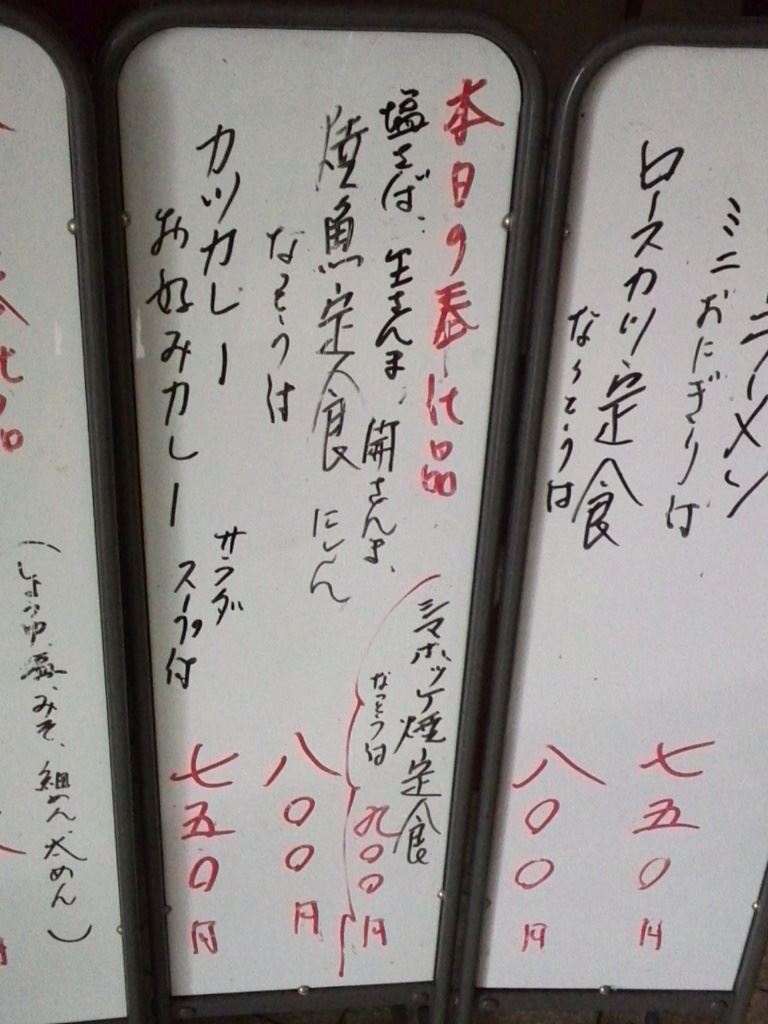 ラーメン
ミニおにぎり付
七五〇円
ロースカツ定食
なっとう付
八〇〇円
本日の奉仕品
塩さば、生さんま、開さんま、
焼魚定食 にしん
なっとう付
八〇〇円
シマホッケ焼定食
なっとう付
九〇〇円
カツカレー
お好みカレー
サラダ
スープ付
七五〇円
(しょうゆ、塩、みそ、細めん、太めん)